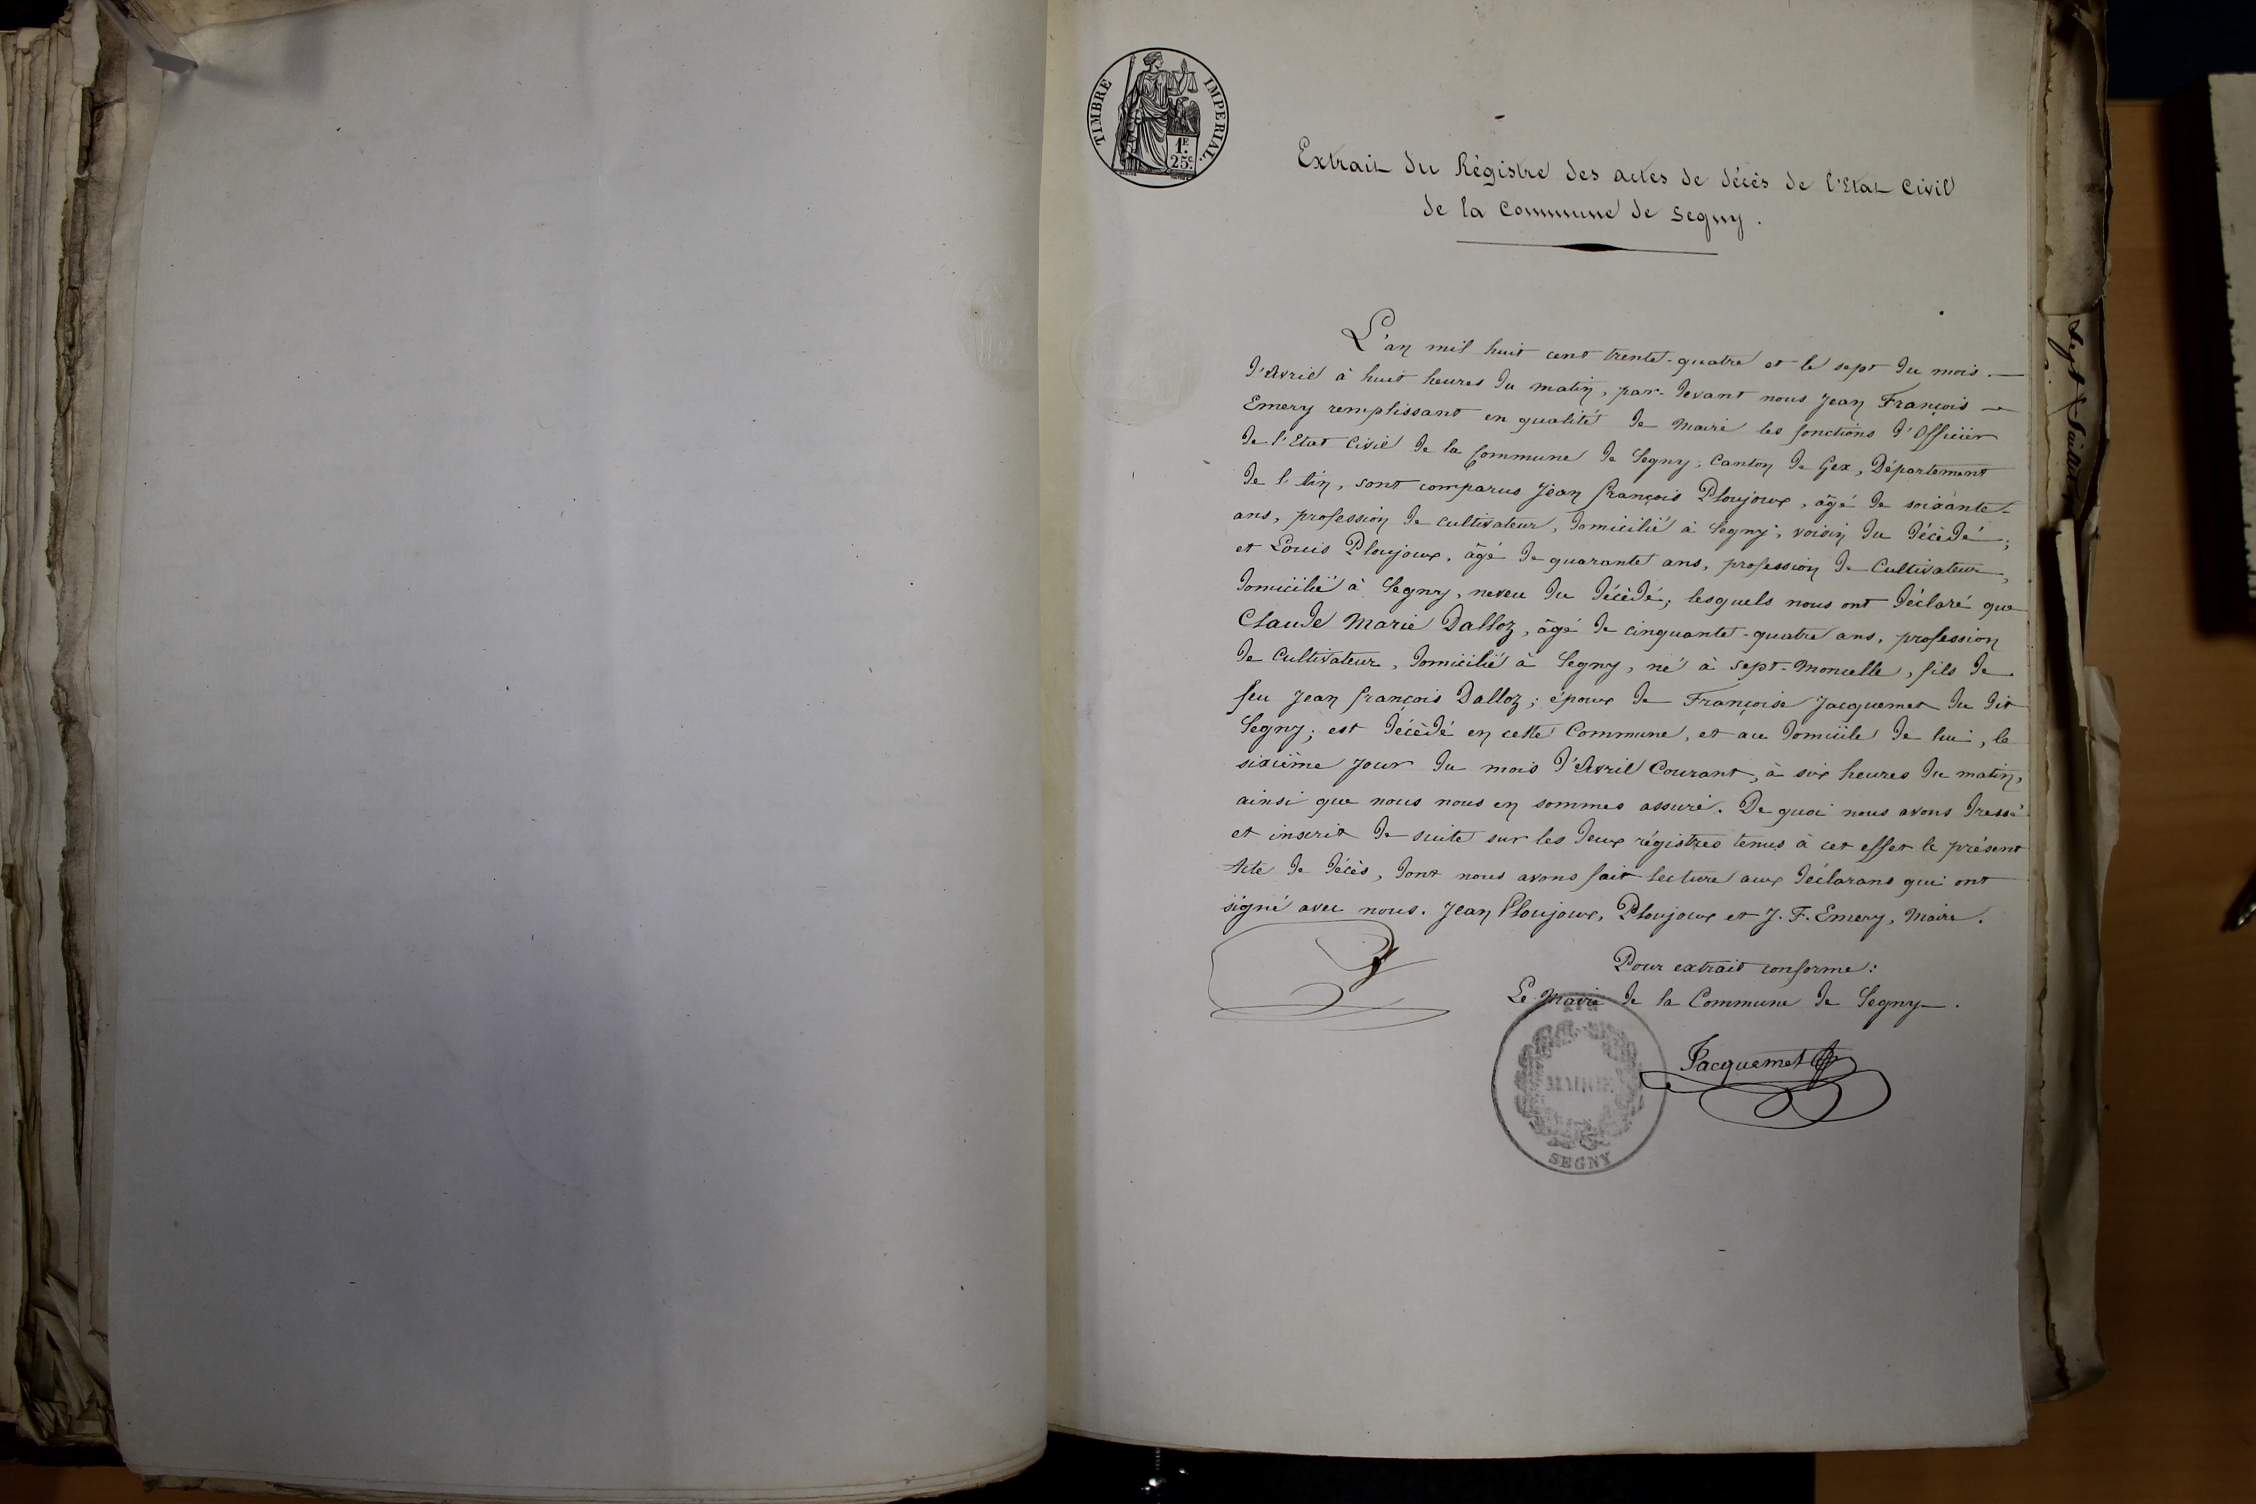 TIMBRE IMPERIAL.
1F.
25c.
Extrait du Régistre des actes de décès de l'Etat Civil
de la Commune de Segny.
L'an mil huit cent trente-quatre et le sept du mois.—
d'Avril à huit heures du matin, par-devant nous Jean François —
Emery remplissant en qualité de Maire les fonctions d'Officier
de l'Etat Civil de la Commune de Segny, Canton de Gex, Département
de l'Ain, sont comparus Jean françois Ploujoux, âgé de soixante-
ans, profession de cultivateur, domicilié à Segny, voisin du décédé;
et Louis Ploujoux, âgé de quarante ans, profession de Cultivateur,
domicilié à Segny, neveu du décédé; lesquels nous ont déclaré que
Claude Marie Dalloz, âgé de cinquante-quatre ans, profession
de Cultivateur, domicilié à Segny, né à Sept-Moncelle, fils de
feu Jean françois Dalloz; époux de Françoise Jacquemet du dit
Segny; est décédé en cette Commune, et au domicile de lui, le
sixième jour du mois d'Avril Courant, à six heures du matin,
ainsi que nous nous en sommes assuré. De quoi nous avons dressé
et inscrit de suite sur les deux régistres tenus à cet effet le présent
Acte de décès, dont nous avons fait lecture aux déclarans qui ont
signé avec nous. Jean Ploujoux, Ploujoux et J. F. Emery, Maire.
Pour extrait conforme:
Le Maire de la Commune de Segny—.
Jacquemet
AIN
MAIRIE
SEGNY